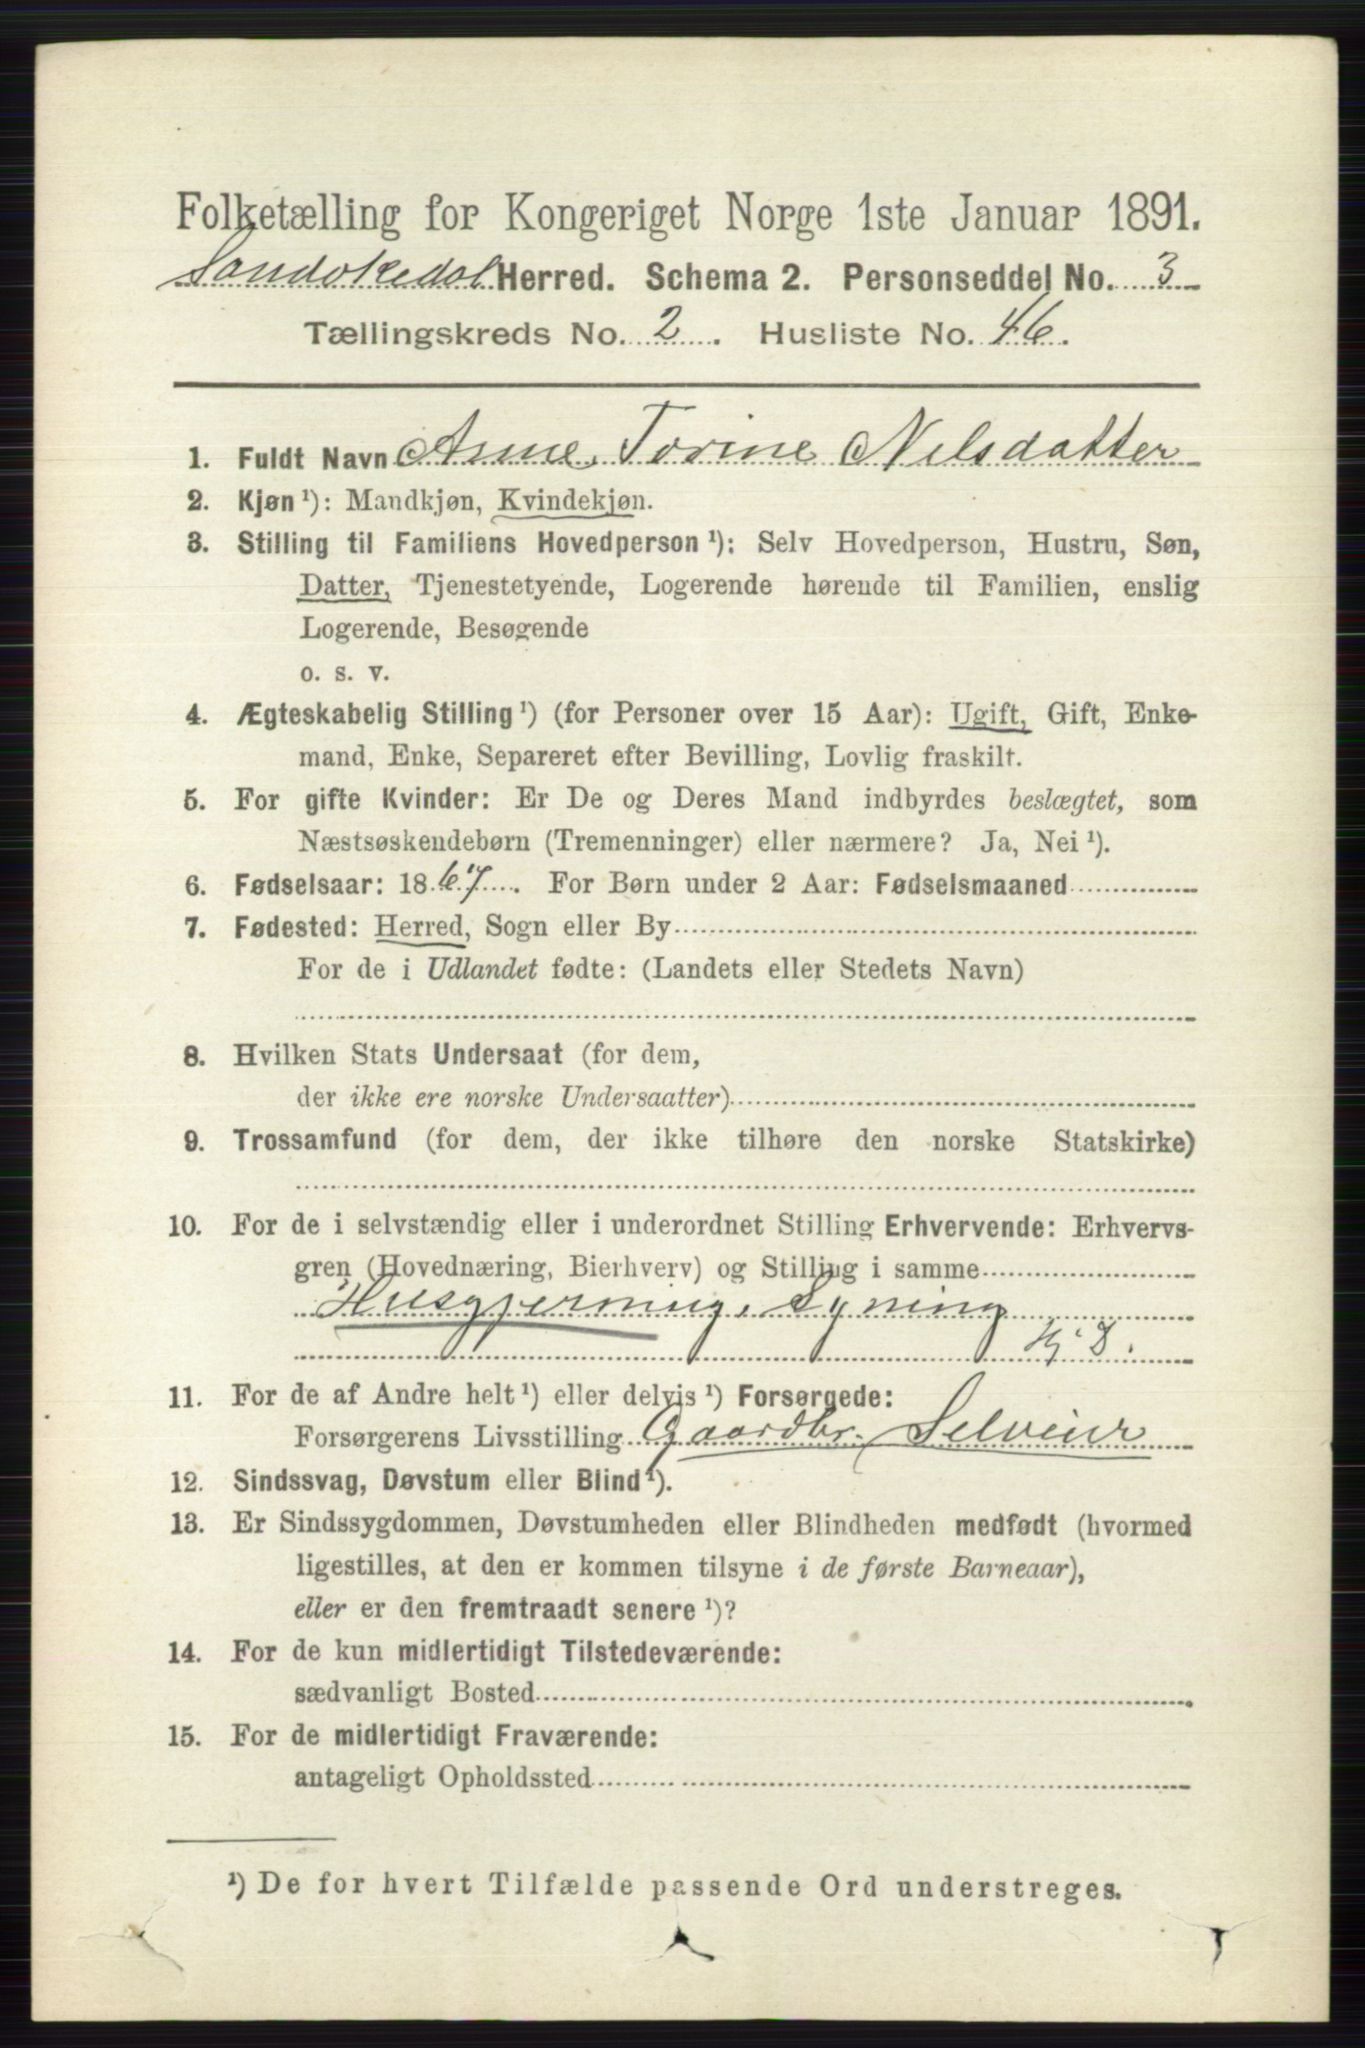 Folketælling for Kongeriget Norge 1ste Januar 1891.
Sandøkedal Herred. Schema 2. Personseddel No. 3
Tællingskreds No. 2. Husliste No. 46.
1. Fuldt Navn Anne Torine Nilsdatter
2. Kjøn ¹): Mandkjøn, Kvindekjøn.
3. Stilling til Familiens Hovedperson ¹): Selv Hovedperson, Hustru, Søn,
Datter, Tjenestetyende, Logerende hørende til Familien, enslig
Logerende, Besøgende
o. s. v.
4. Ægteskabelig Stilling ¹) (for Personer over 15 Aar): Ugift, Gift, Enke-
mand, Enke, Separeret efter Bevilling, Lovlig fraskilt.
5. For gifte Kvinder: Er De og Deres Mand indbyrdes beslægtet, som
Næstsøskendebørn (Tremenninger) eller nærmere? Ja, Nei ¹).
6. Fødselsaar: 1867. For Børn under 2 Aar: Fødselsmaaned
7. Fødested: Herred, Sogn eller By
For de i Udlandet fødte: (Landets eller Stedets Navn)
8. Hvilken Stats Undersaat (for dem,
der ikke ere norske Undersaatter)
9. Trossamfund (for dem, der ikke tilhøre den norske Statskirke)
10. For de i selvstændig eller i underordnet Stilling Erhvervende: Erhvervs-
gren (Hovednæring, Bierhverv) og Stilling i samme
Husgjerning, Syning
11. For de af Andre helt ¹) eller delvis ¹) Forsørgede:
Forsørgerens Livsstilling Gaardbr. Selveier
12. Sindssvag, Døvstum eller Blind ¹).
13. Er Sindssygdommen, Døvstumheden eller Blindheden medfødt (hvormed
ligestilles, at den er kommen tilsyne i de første Barneaar),
eller er den fremtraadt senere ¹)?
14. For de kun midlertidigt Tilstedeværende:
sædvanligt Bosted
15. For de midlertidigt Fraværende:
antageligt Opholdssted
¹) De for hvert Tilfælde passende Ord understreges.